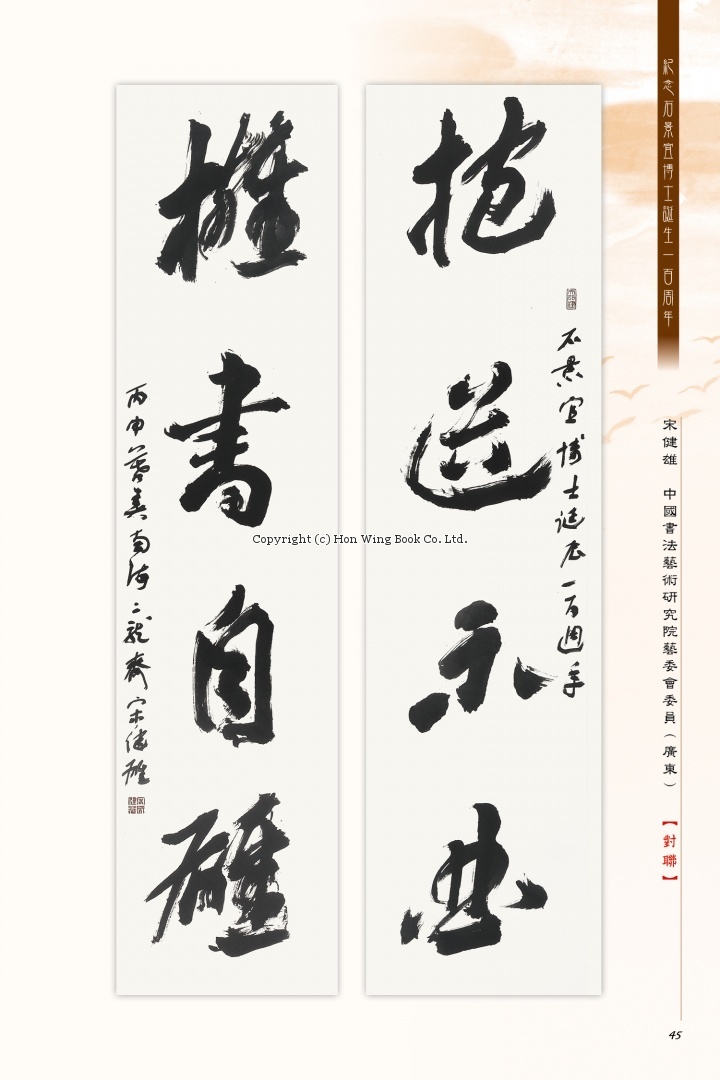 紀念石景宜博士誕生一百周年
宋健雄 中國書法藝術研究院藝委會委員（廣東）
【對聯】
抱道不曲
石景宜博士誕辰一百週年
擁書自雄
丙申
南海二龍齋宋健雄
Copyright (c) Hon Wing Book Co. Ltd.
45